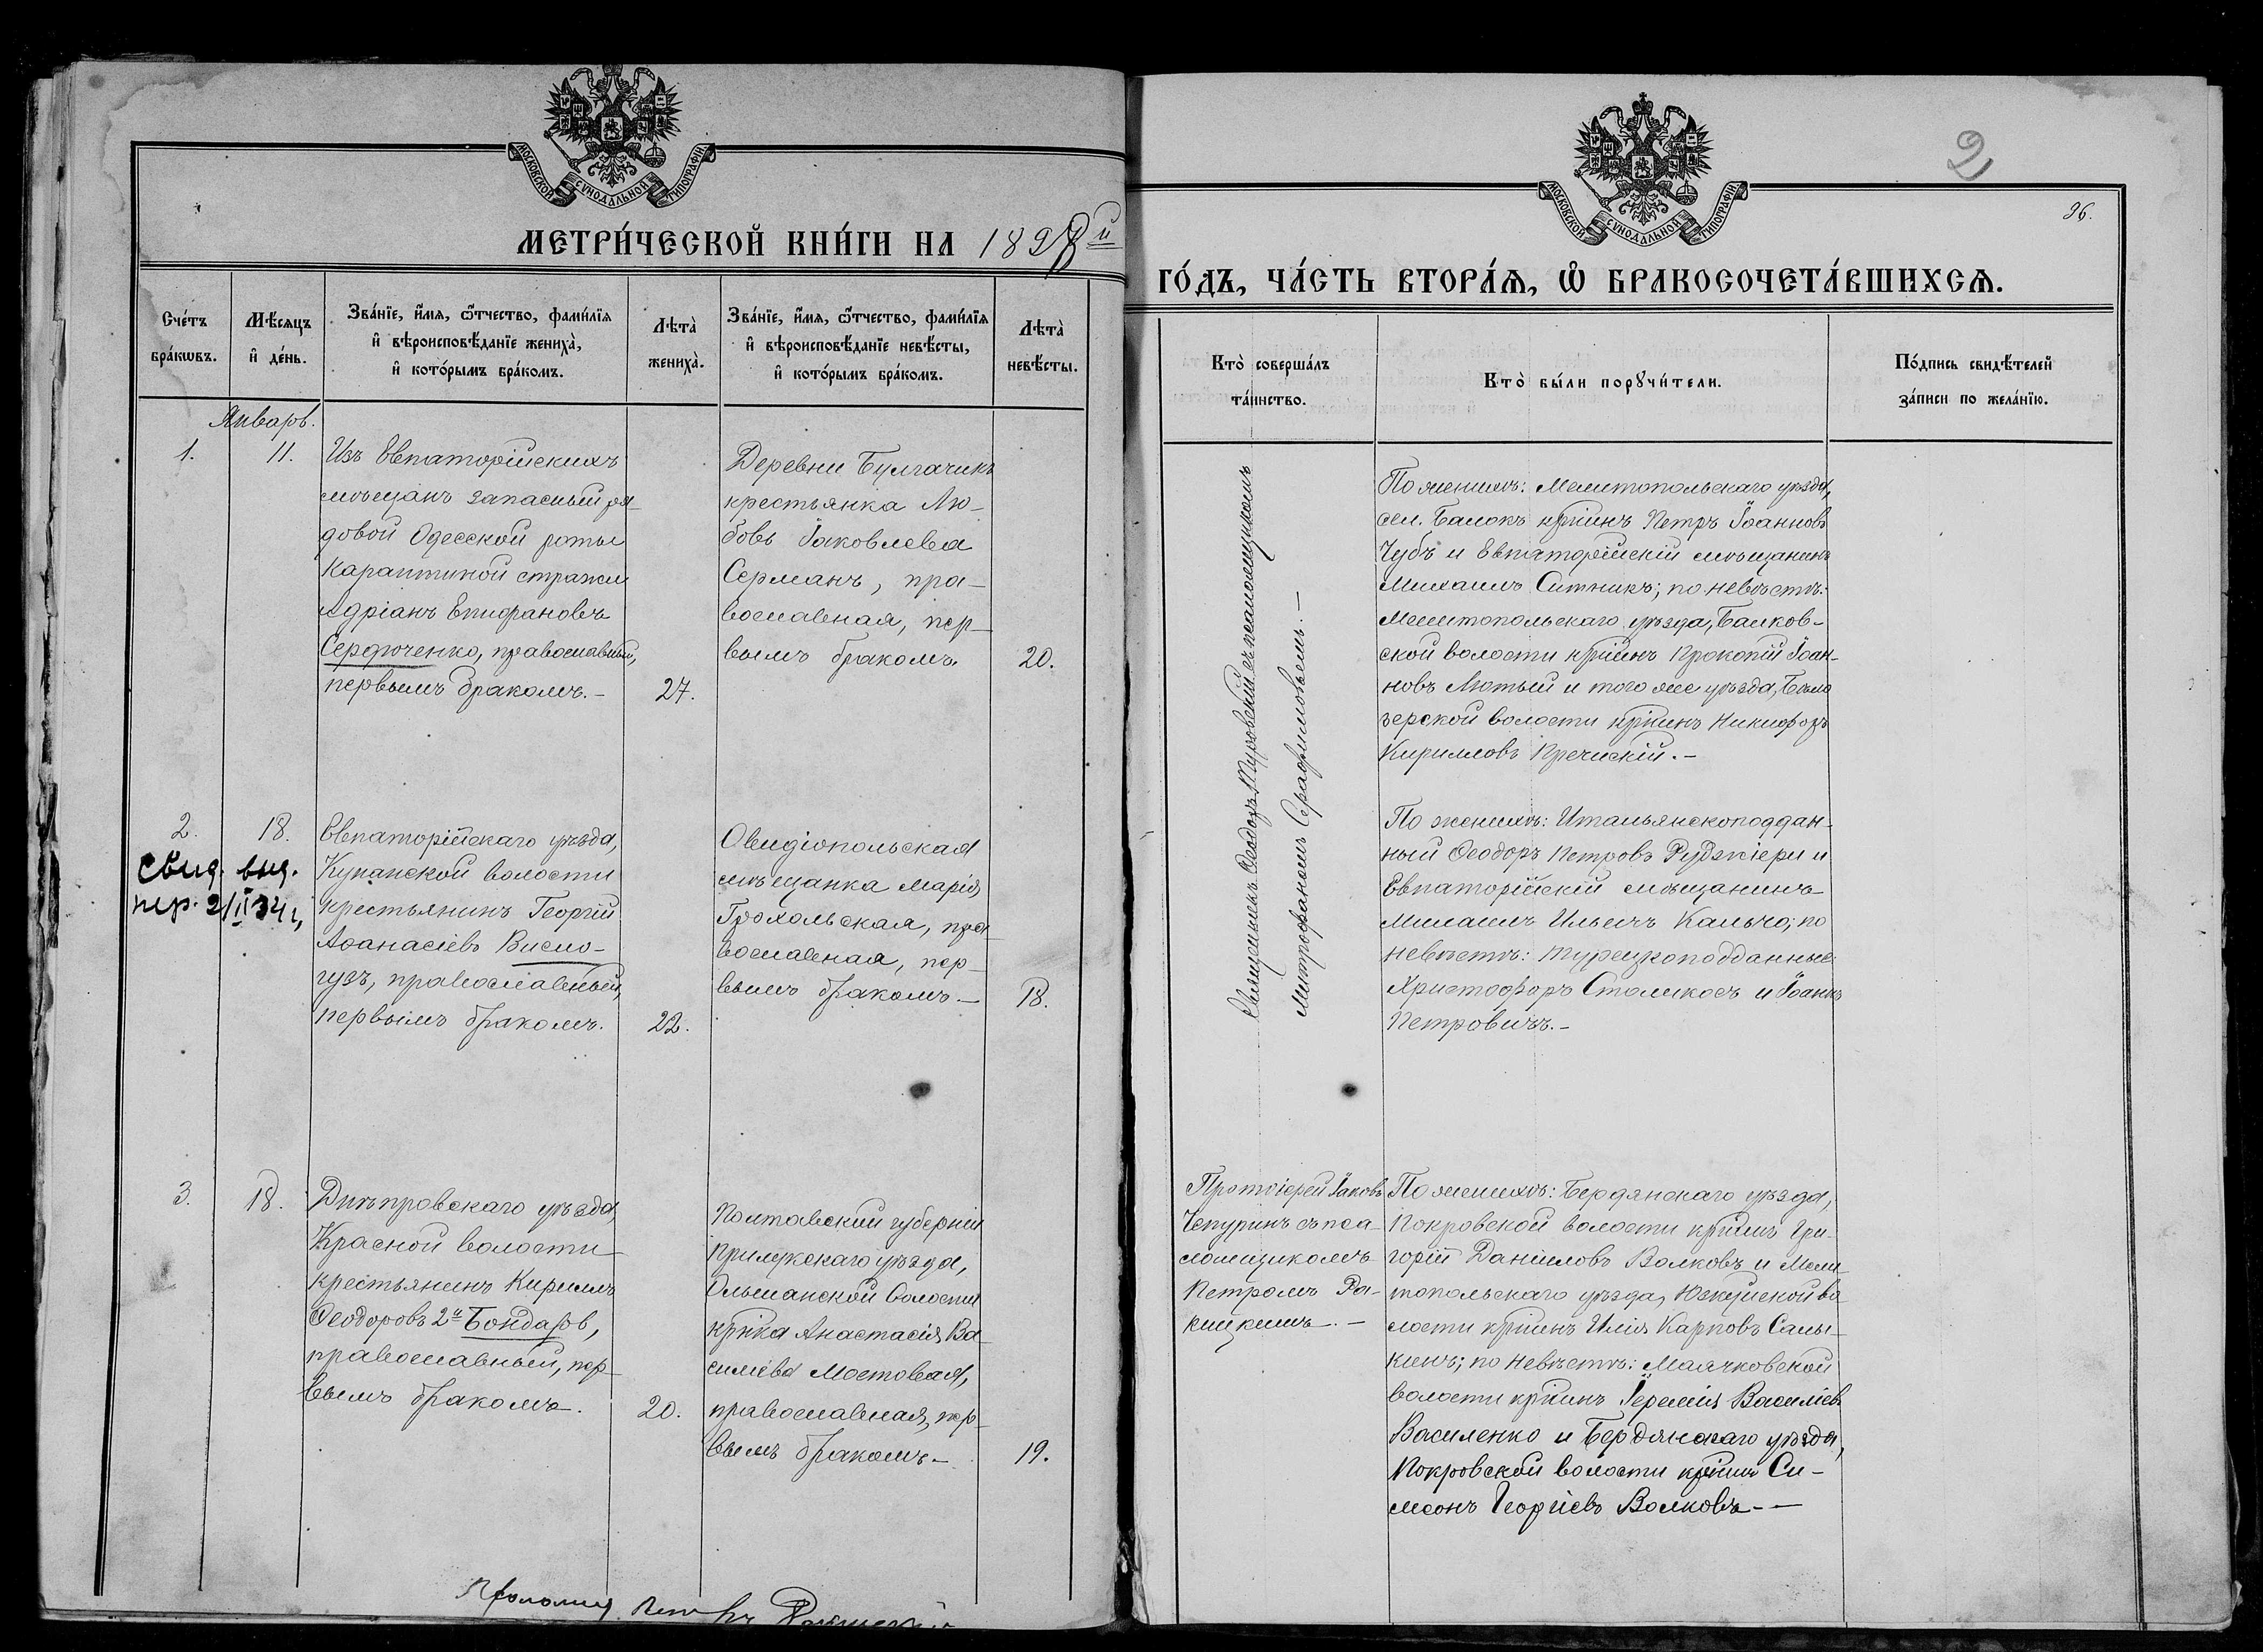 МОСКОВСКОЙ СѴНОДАЛЬНОЙ ТИПОГРАФІИ
МЕТРИ́ЧЕСКОЙ КНИ́ГИ НА 1898й
Сче́тъ
бра́кѡвъ.
Мѣ́сяцъ
и҆ де́нь.
Зва́нїе, и҆́мя, ѻ҆́тчество, фами́лїя
и҆ вѣроисповѣ́данїе жениха̀,
и҆ кото́рымъ бра́комъ.
Лѣта̀
жениха̀.
Зва́нїе, и҆́мя, ѻ҆́тчество, фами́лїя
и҆ вѣроисповѣ́данїе невѣ́сты,
и҆ кото́рымъ бра́комъ.
Лѣта̀
невѣ́сты.
Январь.
1.
11.
Изъ Евпаторійскихъ
мѣщанъ запасный ря-
довой Одесской роты
Карантиной стражи
Адріанъ Епифановъ
Сердюченко, православный,
первымъ бракомъ.-
27.
Деревни Булгачикъ
крестьянка Лю-
бовь Іаковлева
Серманъ, пра-
вославная, пер-
вымъ бракомъ.
20.
2.
18.
свид. выд.
пер. 2/II 34 г,
Евпаторійскаго уѣзда,
Кунанской волости
крестьянинъ Георгій
Аѳанасіевъ Висло-
гузъ, православный,
первымъ бракомъ.
22.
Овидіопольская
мѣщанка Марія
Грохольская, пра-
вославная, пер-
вымъ бракомъ-
18.
3.
18.
Днѣпровскаго уѣзда,
Красной волости
крестьянинъ Кириллъ
Ѳеодоровъ 2й Бондаровъ,
православный, пер-
вымъ бракомъ.
20.
Полтавской губерніи
Прилукскаго уѣзда,
Ольшанской волости
крнка Анастасія Ва-
силіева Мостовая,
православная, пер-
вымъ бракомъ-
19.
Псаломщ. Петръ
МОСКОВСКОЙ СѴНОДАЛЬНОЙ ТИПОГРАФІИ
2
96.
ГО́ДЪ, ЧА́СТЬ ВТОРА́Ѧ, Ѽ БРАКОСОЧЕТА́ВШИХСѦ.
Кто̀ соверша́лъ
та́инство.
Кто̀ бы́ли порꙋчи́тели.
По́дпись свидѣ́телей
за́писи по жела́нїю.
Священникъ Ѳеодоръ Туровскій съ псаломщикомъ
Митрофаномъ Серафимовымъ.-
По женихѣ: Мелитопольскаго уѣзда,
сел. Балокъ кр-инъ Петръ Іоанновъ
Чубъ и Евпаторійскій мѣщанинъ
Михаилъ Ситникъ; по невѣстѣ:
Мелитопольскаго уѣзда, Балков-
ской волости кр-инъ Прокопій Іоан-
новъ Лютый и того же уѣзда, Бѣло
зерской волости кр-инъ Никифоръ
Кирилловъ Пречискій.-
По женихѣ: Итальянскоподдан-
ный Ѳеодоръ Петровъ Руджіери и
Евпаторійскій мѣщанинъ
Михаилъ Ильичъ Кальчо; по
невѣстѣ: турецкоподданные:
Христофоръ Стомикосъ и Іоаннъ
Петровичъ.-
Протоіерей Іаковъ
Чепуринъ съ пса-
ломщикомъ
Петромъ Ра-
кицкимъ.-
По женихѣ: Бердянскаго уѣзда,
Покровской волости кр-инъ Гри-
горій Даниловъ Волковъ и Мели-
топольскаго уѣзда, Юзкуйской во
лости кр-инъ Илія Карповъ Салы-
кинъ; по невѣстѣ: Маячковской
волости кр-инъ Іеремія Василіевъ
Василенко и Бердянскаго уѣзда,
Покровской волости кр-инъ Си-
меонъ Георгіевъ Волковъ--